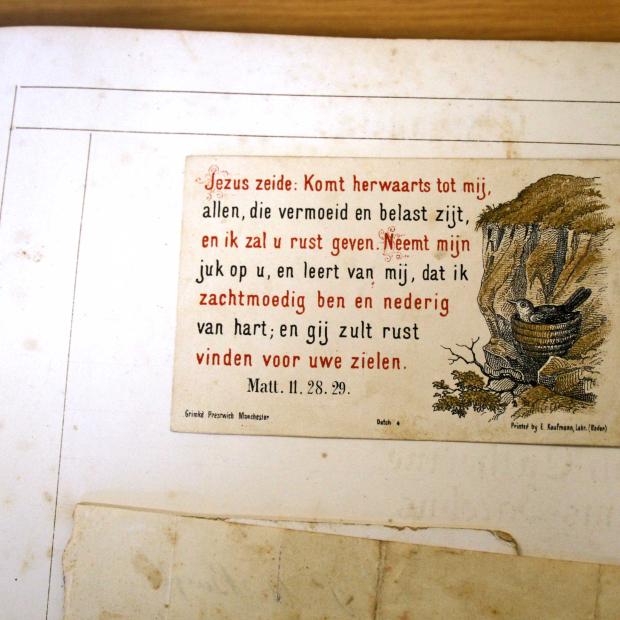 Jezus zeide: Komt herwaarts tot mij,
allen, die vermoeid en belast zijt,
en ik zal u rust geven. Neemt mijn
juk op u, en leert van mij, dat ik
zachtmoedig ben en nederig
van hart; en gij zult rust
vinden voor uwe zielen.
Matt. 11. 28. 29.
Grimké Prestwich Manchester
Dutch 4
Printed by E. Kaufmann, Lahr. (Baden)